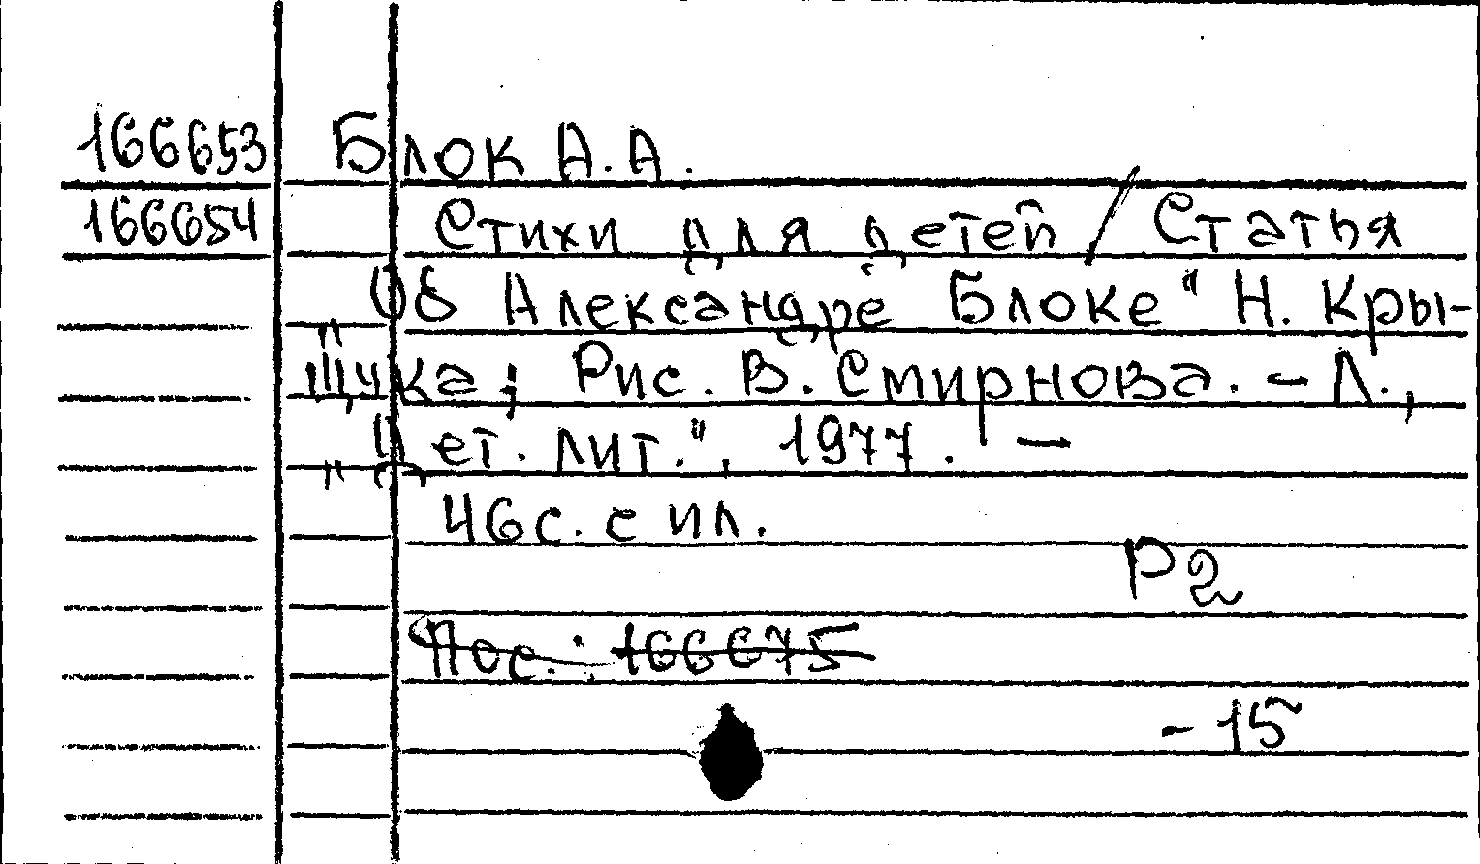 166653 Блок А.А.
166654 Стихи для детей / Статья
"Об Александре Блоке" Н. Кры-
щука; Рис. В. Смирнова. - Л.,
"Дет. лит.", 1977. -
46с. с ил.
Р2
Пос.: 166675
- 15